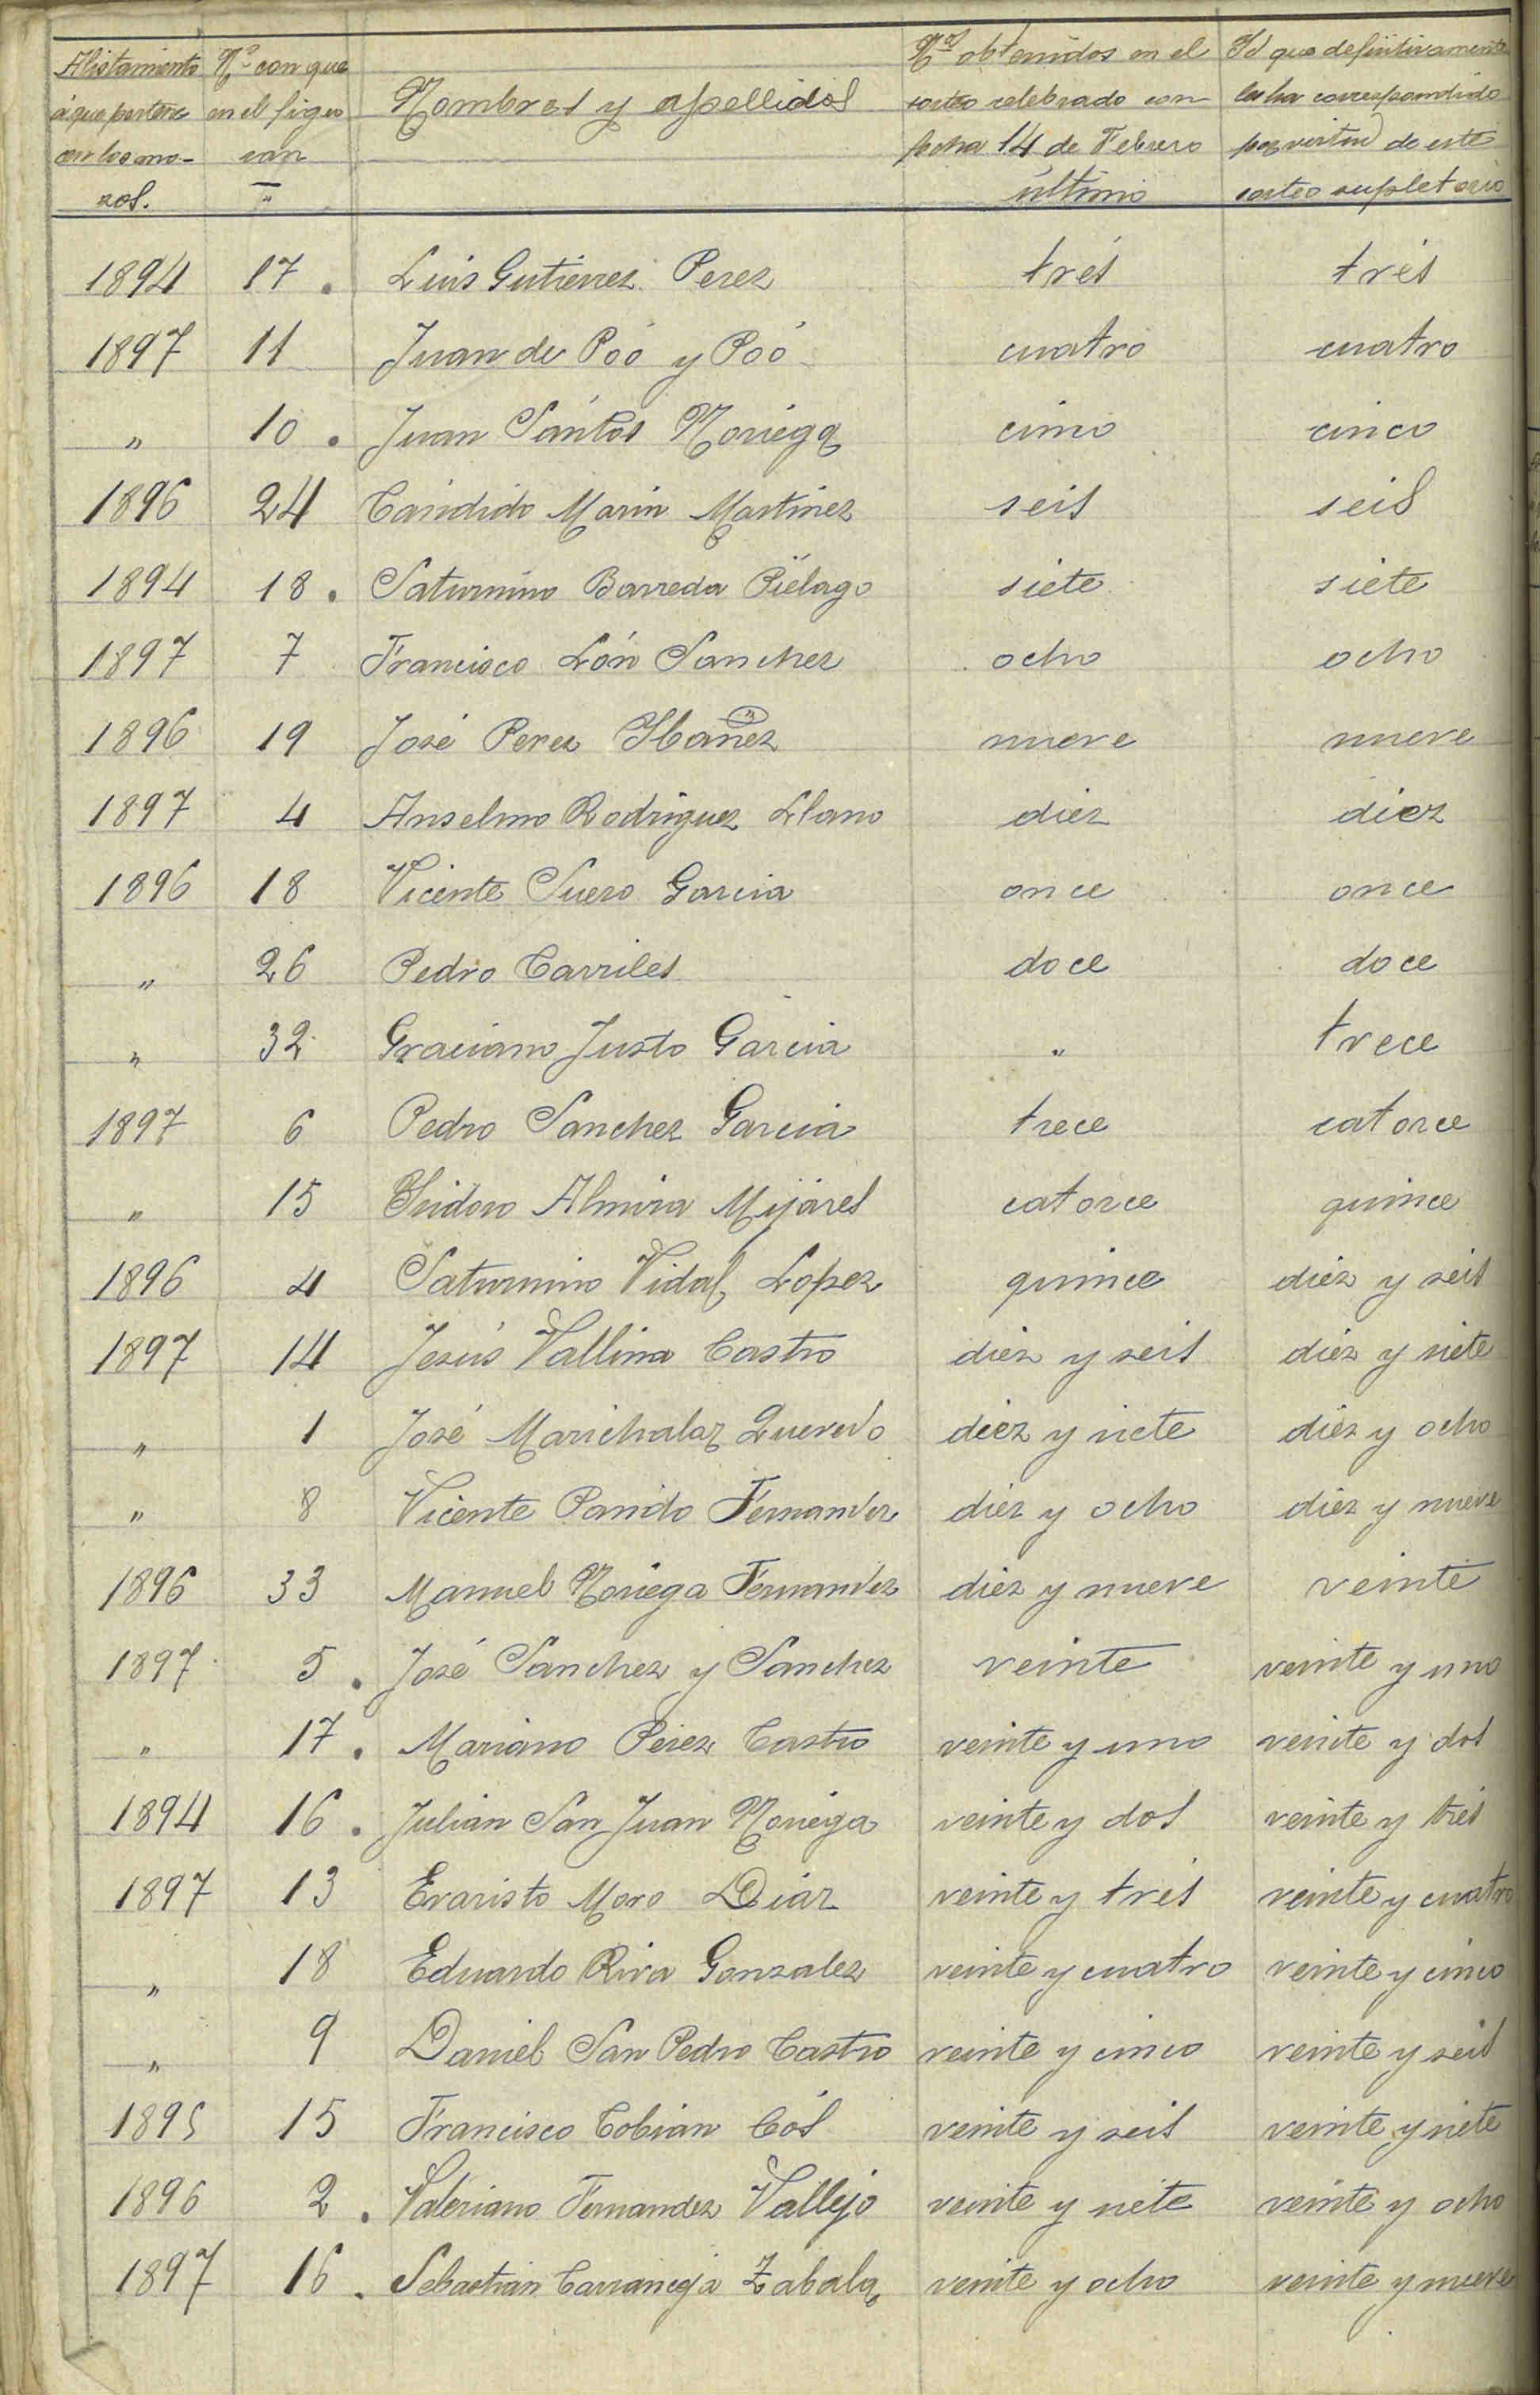 Alistamiento á que pertenecen los mozos.	Nº con que en el figuran	Nombres y apellidos	Nos obtenidos en el sorteo celebrado con fecha 14 de Febrero último	Id que definitivamente les ha correspondido por virtud de este sorteo supletorio
1894	17.	Luis Gutierrez Perez	trés	trés
1897	11	Juan de Póo y Póo	cuatro	cuatro
"	10.	Juan Sántos Noriega	cinco	cinco
1896	24	Cándido Marin Martinez	seis	seis
1894	18.	Saturnino Barreda Piélago	siete	siete
1897	7	Francisco Lón Sanchez	ocho	ocho
1896	19	José Perez Ybañez	nueve	nueve
1897	4	Anselmo Rodriguez Llano	diez	diez
1896	18	Vicente Suero Garcia	once	once
"	26	Pedro Carriles	doce	doce
"	32	Graciano Justo Garcia	"	trece
1897	6	Pedro Sanchez Garcia	trece	catorce
"	15	Ysidoro Almira Mijares	catorce	quince
1896	4	Saturnino Vidal Lopez	quince	diez y seis
1897	14	Jesús Vallina Castro	diez y seis	diez y siete
"	1	José Marichalar Quevedo	diez y siete	diez y ocho
"	8	Vicente Pando Fernandez	diez y ocho	diez y nueve
1896	33	Manuel Noriega Fernandez	diez y nueve	veinte
1897	5.	José Sanchez y Sanchez	veinte	veinte y uno
"	17.	Mariano Perez Castro	veinte y uno	veinte y dos
1894	16.	Julian San Juan Noriega	veinte y dos	veinte y trés
1897	13	Evaristo Moro Diaz	veinte y trés	veinte y cuatro
"	18	Eduardo Riva Gonzalez	veinte y cuatro	veinte y cinco
"	9	Daniel San Pedro Castro	veinte y cinco	veinte y seis
1895	15	Francisco Cobian Cós	veinte y seis	veinte y siete
1896	2.	Valeriano Fernandez Vallejo	veinte y siete	veinte y ocho
1897	16.	Sebastián Carranceja Zabala	veinte y ocho	veinte y nueve